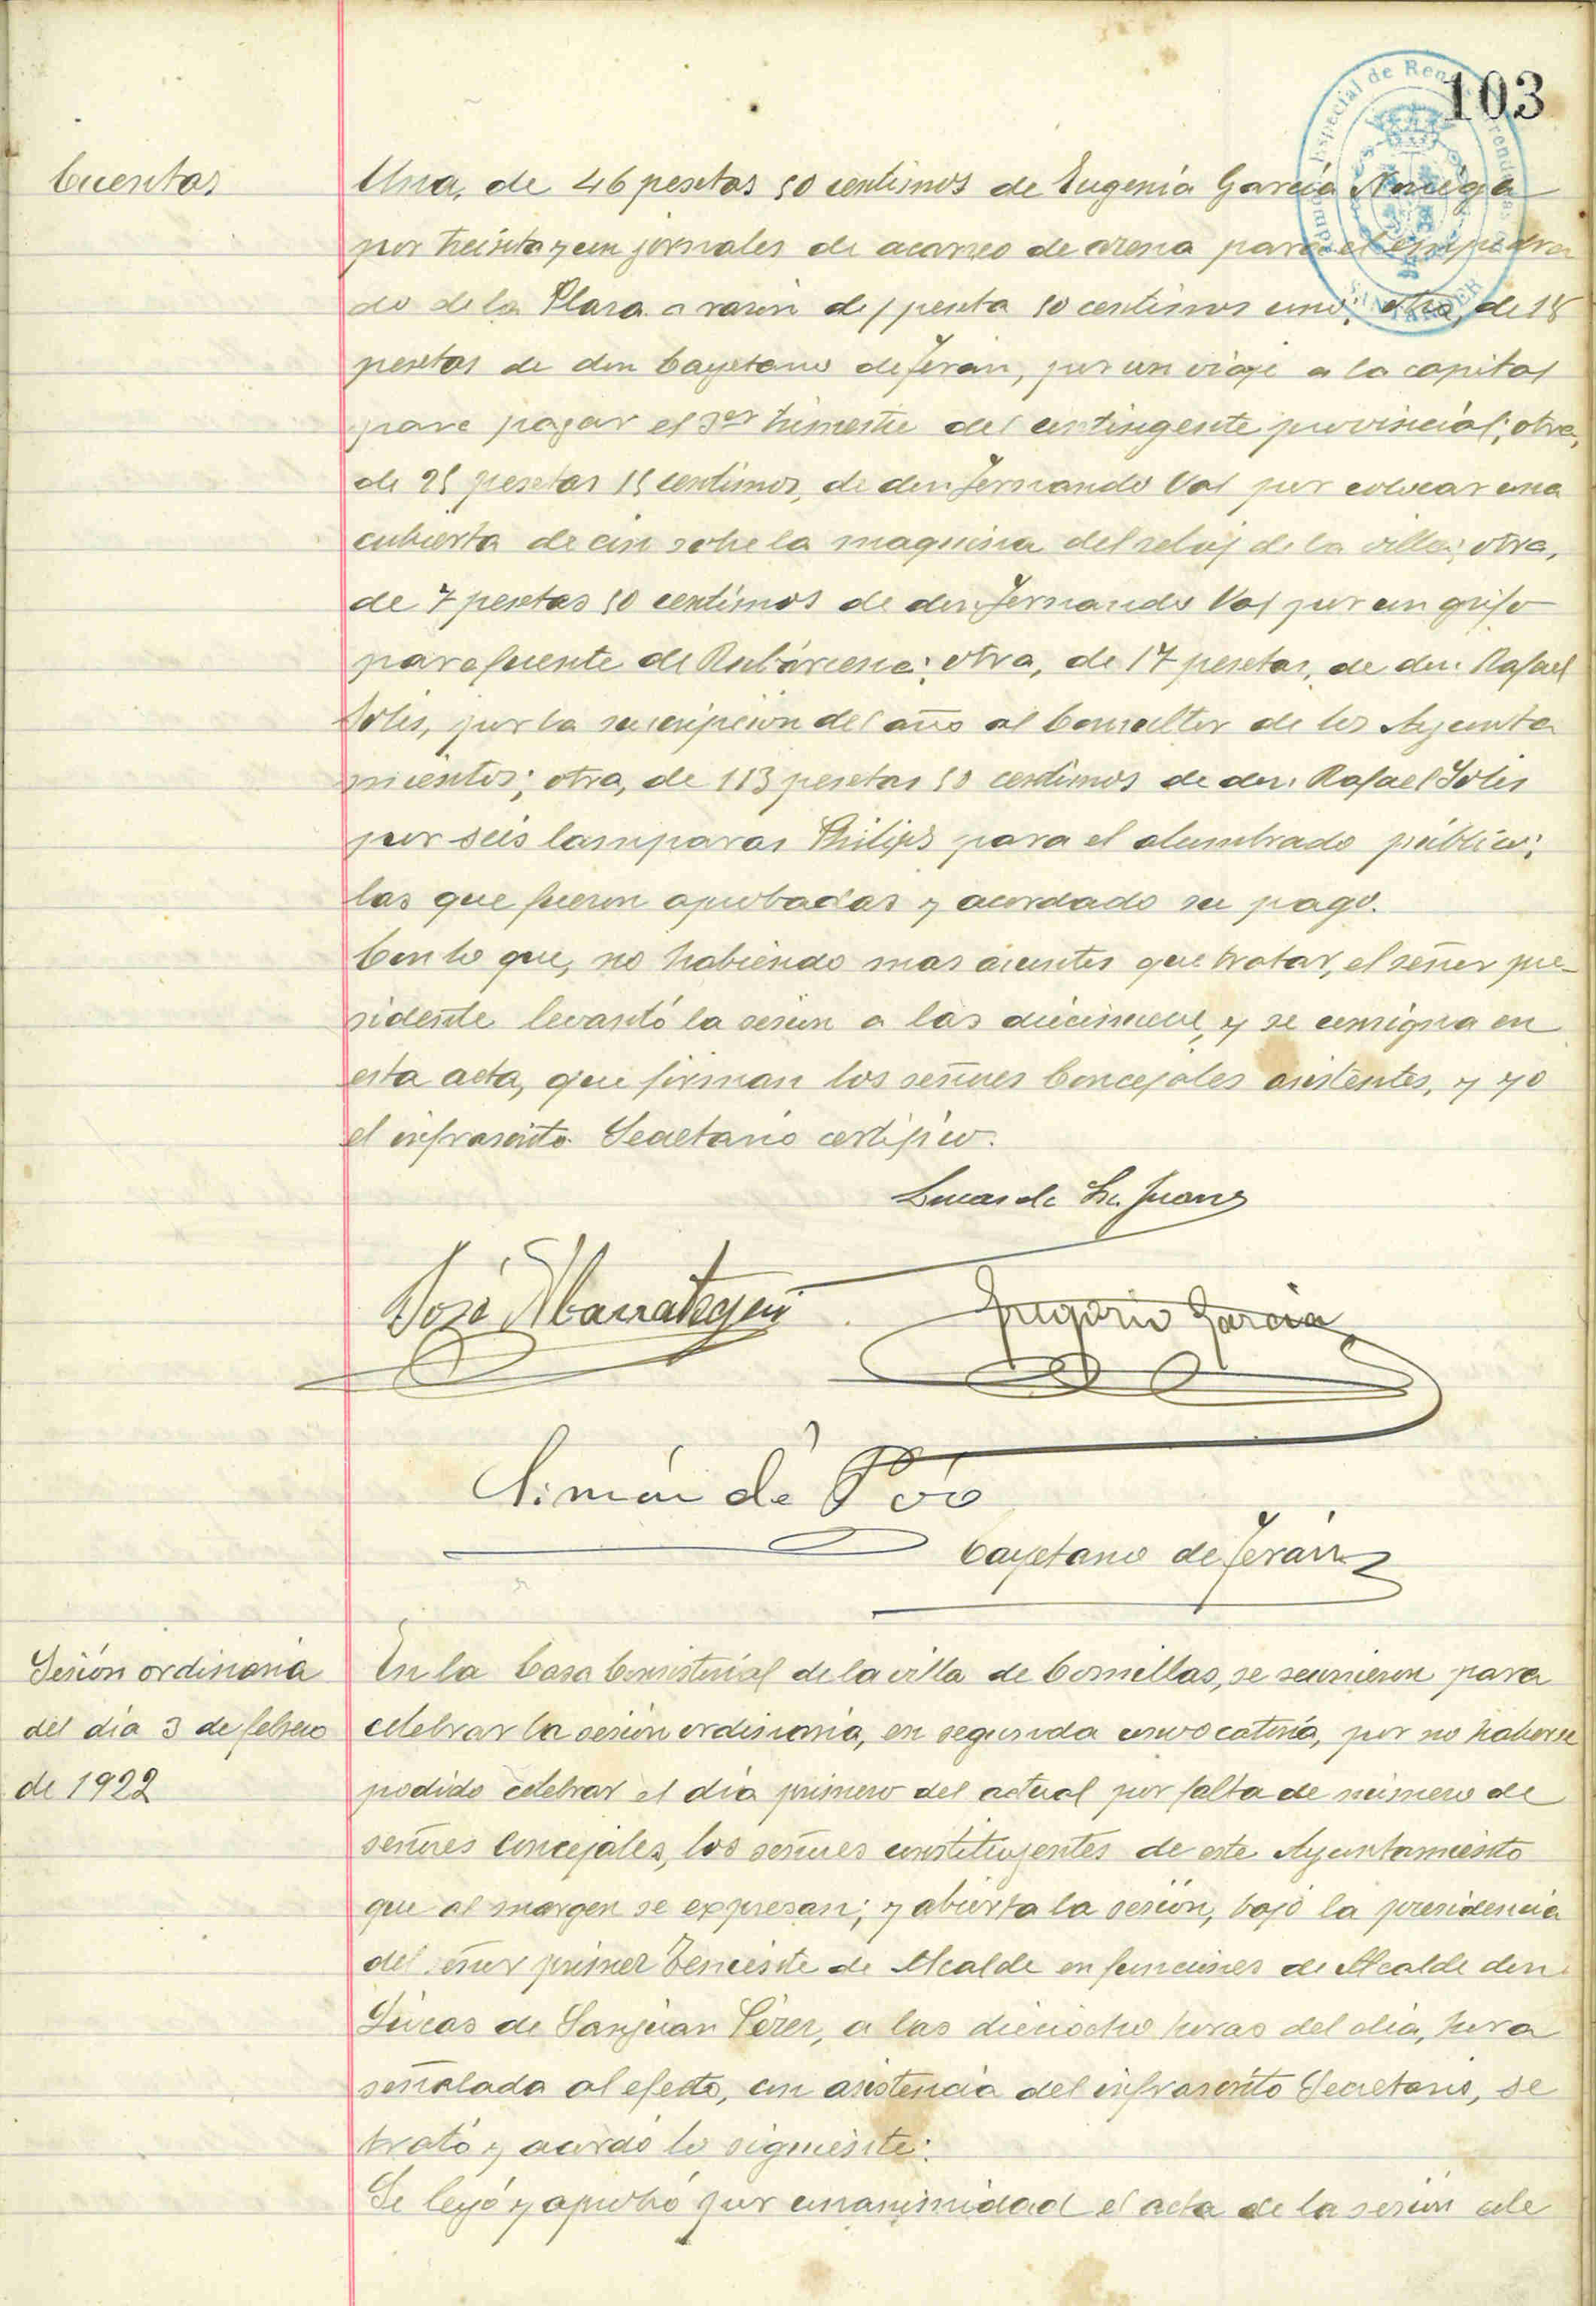 103
Cuentas
Una, de 46 pesetas 50 centimos de Eugenia García Noriega
por treinta y un jornales de acarreo de arena para el empedra
do de la Plaza a razon de 1 peseta 50 centimos uno; otra, de 15
pesetas de don Cayetano de Terán, por un viaje a la capital
para pagar el 3er trimestre del contingente provincial; otra,
de 25 pesetas 15 centimos, de don Fernando Val por colocar una
cubierta de cin sobre la maquina del reloj de la villa; otra,
de 7 pesetas 50 centimos de don Fernando Val por un grifo
para fuente de Rubárcena; otra, de 17 pesetas, de don Rafael
Solis, por la suscripcion del año al Consultor de los Ayunta
mientos; otra, de 113 pesetas 50 centimos de don Rafael Solis
por seis lamparas Philips para el alumbrado público;
las que fueron aprobadas y acordado su pago.
Con lo que, no habiendo mas asuntos que tratar, el señor pre-
sidente levantó la sesion a las diecinueve, y se consigna en
esta acta, que firman los señores Concejales asistentes, y yo
el infrascrito Secretario certifico.
Lucas de Sn. Juan
José Marrategui
Gregorio Garcia
Simón de Póo
Cayetano de Terán
Sesión ordinaria
del dia 3 de febrero
de 1922
En la Casa Consistorial de la villa de Comillas, se reunieron para
celebrar la sesión ordinaria, en segunda convocatoria, por no haberse
podido celebrar el día primero del actual por falta de número de
señores Concejales, los señores constituyentes de este Ayuntamiento
que al margen se expresan; y abierta la sesión, bajo la presidencia
del señor primer Teniente de Alcalde en funciones de Alcalde don
Lúcas de Sanjuan Pérez, a las dieciocho horas del dia, hora
señalada al efecto, con asistencia del infrascrito Secretario, se
trató y acordó lo siguiente:
Se leyó y aprobó por unanimidad el acta de la sesión cele